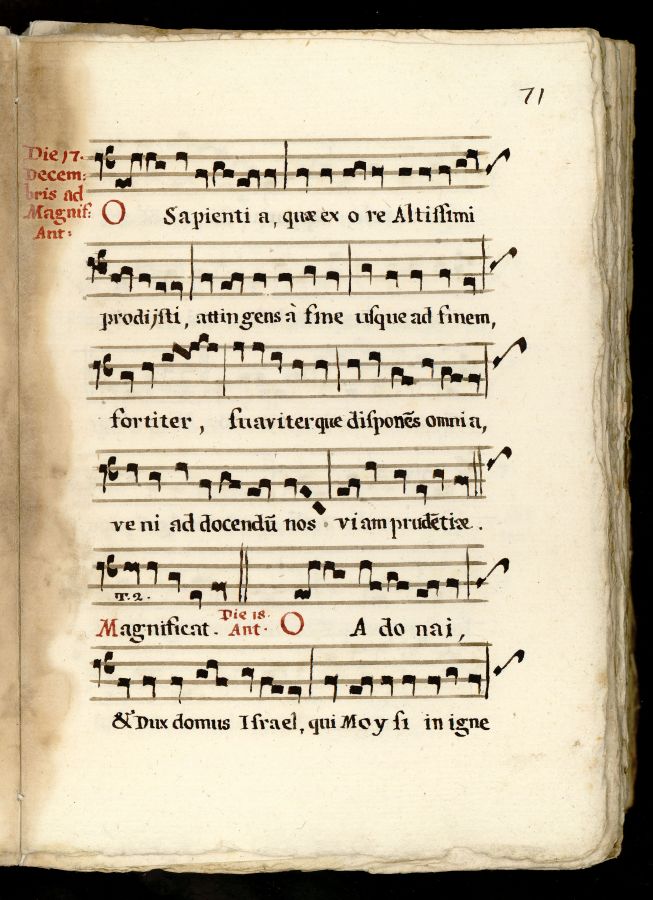 71
Die 17.
Decem:
bris ad
Magnif:
Ant:
O Sapienti a, quæ ex o re Altissimi
prodijsti, attingens à fine usque ad finem,
fortiter, suaviterque disponẽs omnia,
ve ni ad docendũ nos viam prudẽtiæ.
T. 2.
Magnificat. Die 18. Ant. O A do nai,
& Dux domus Israel, qui Moy si in igne